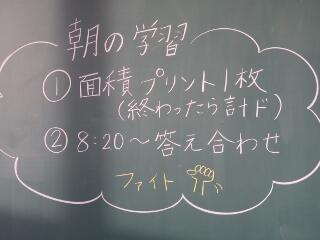 朝の学習
① 面積プリント1枚
(終わったら計ド)
② 8:20～答え合わせ
ファイト